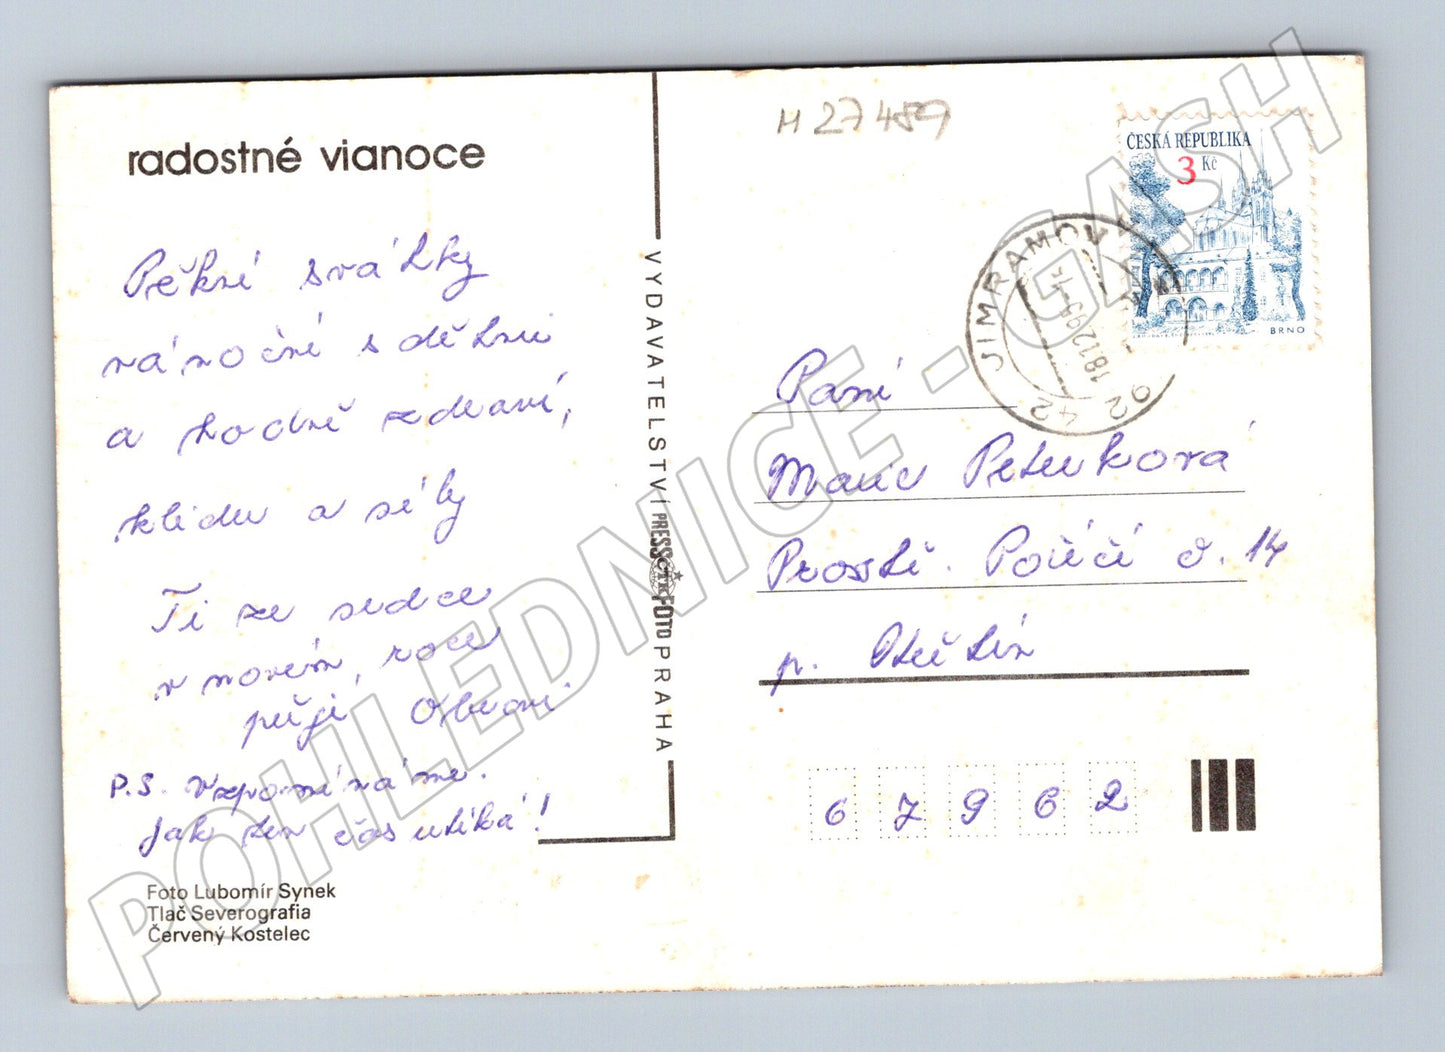 radostné vianoce
Pěkné svátky
vánoční s dětmi
a hodně zdraví,
klidu a síly
Ti ze srdce
v novém roce
přejí
P.S. Vzpomínáme.
Jak ten čas utíká!
Foto Lubomír Synek
Tlač Severografia
Červený Kostelec
VYDAVATELSTVÍ PRESSFOTO PRAHA
ČTK
H 27489
ČESKÁ REPUBLIKA
3 Kč
BRNO
JIMRAMOV
18.12.95
592 42
Paní
Marie Petrková
Prostř. Poříčí č. 14
p.
67962
POHLEDNICE - GASH